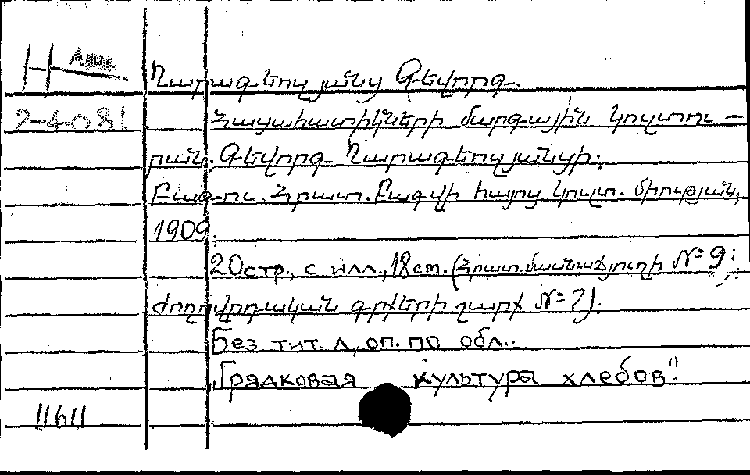 Ղարագեոզյանց Գեվորգ.
2-4081
Հացահատիկների մարգային կուլտու-
րան. Գեվորգ Ղարագեոզյանցի.
Բագու. Հրատ. Բագվի հայոց կուլտ. միության,
1909.
20стр., с илл., 18см. (Հրատ. մասնաճյուղի №9;
Ժողովրդական գրքերի շարք №2).
Без тит. л., оп. по обл..
"Грядковая культура хлебов".
11611